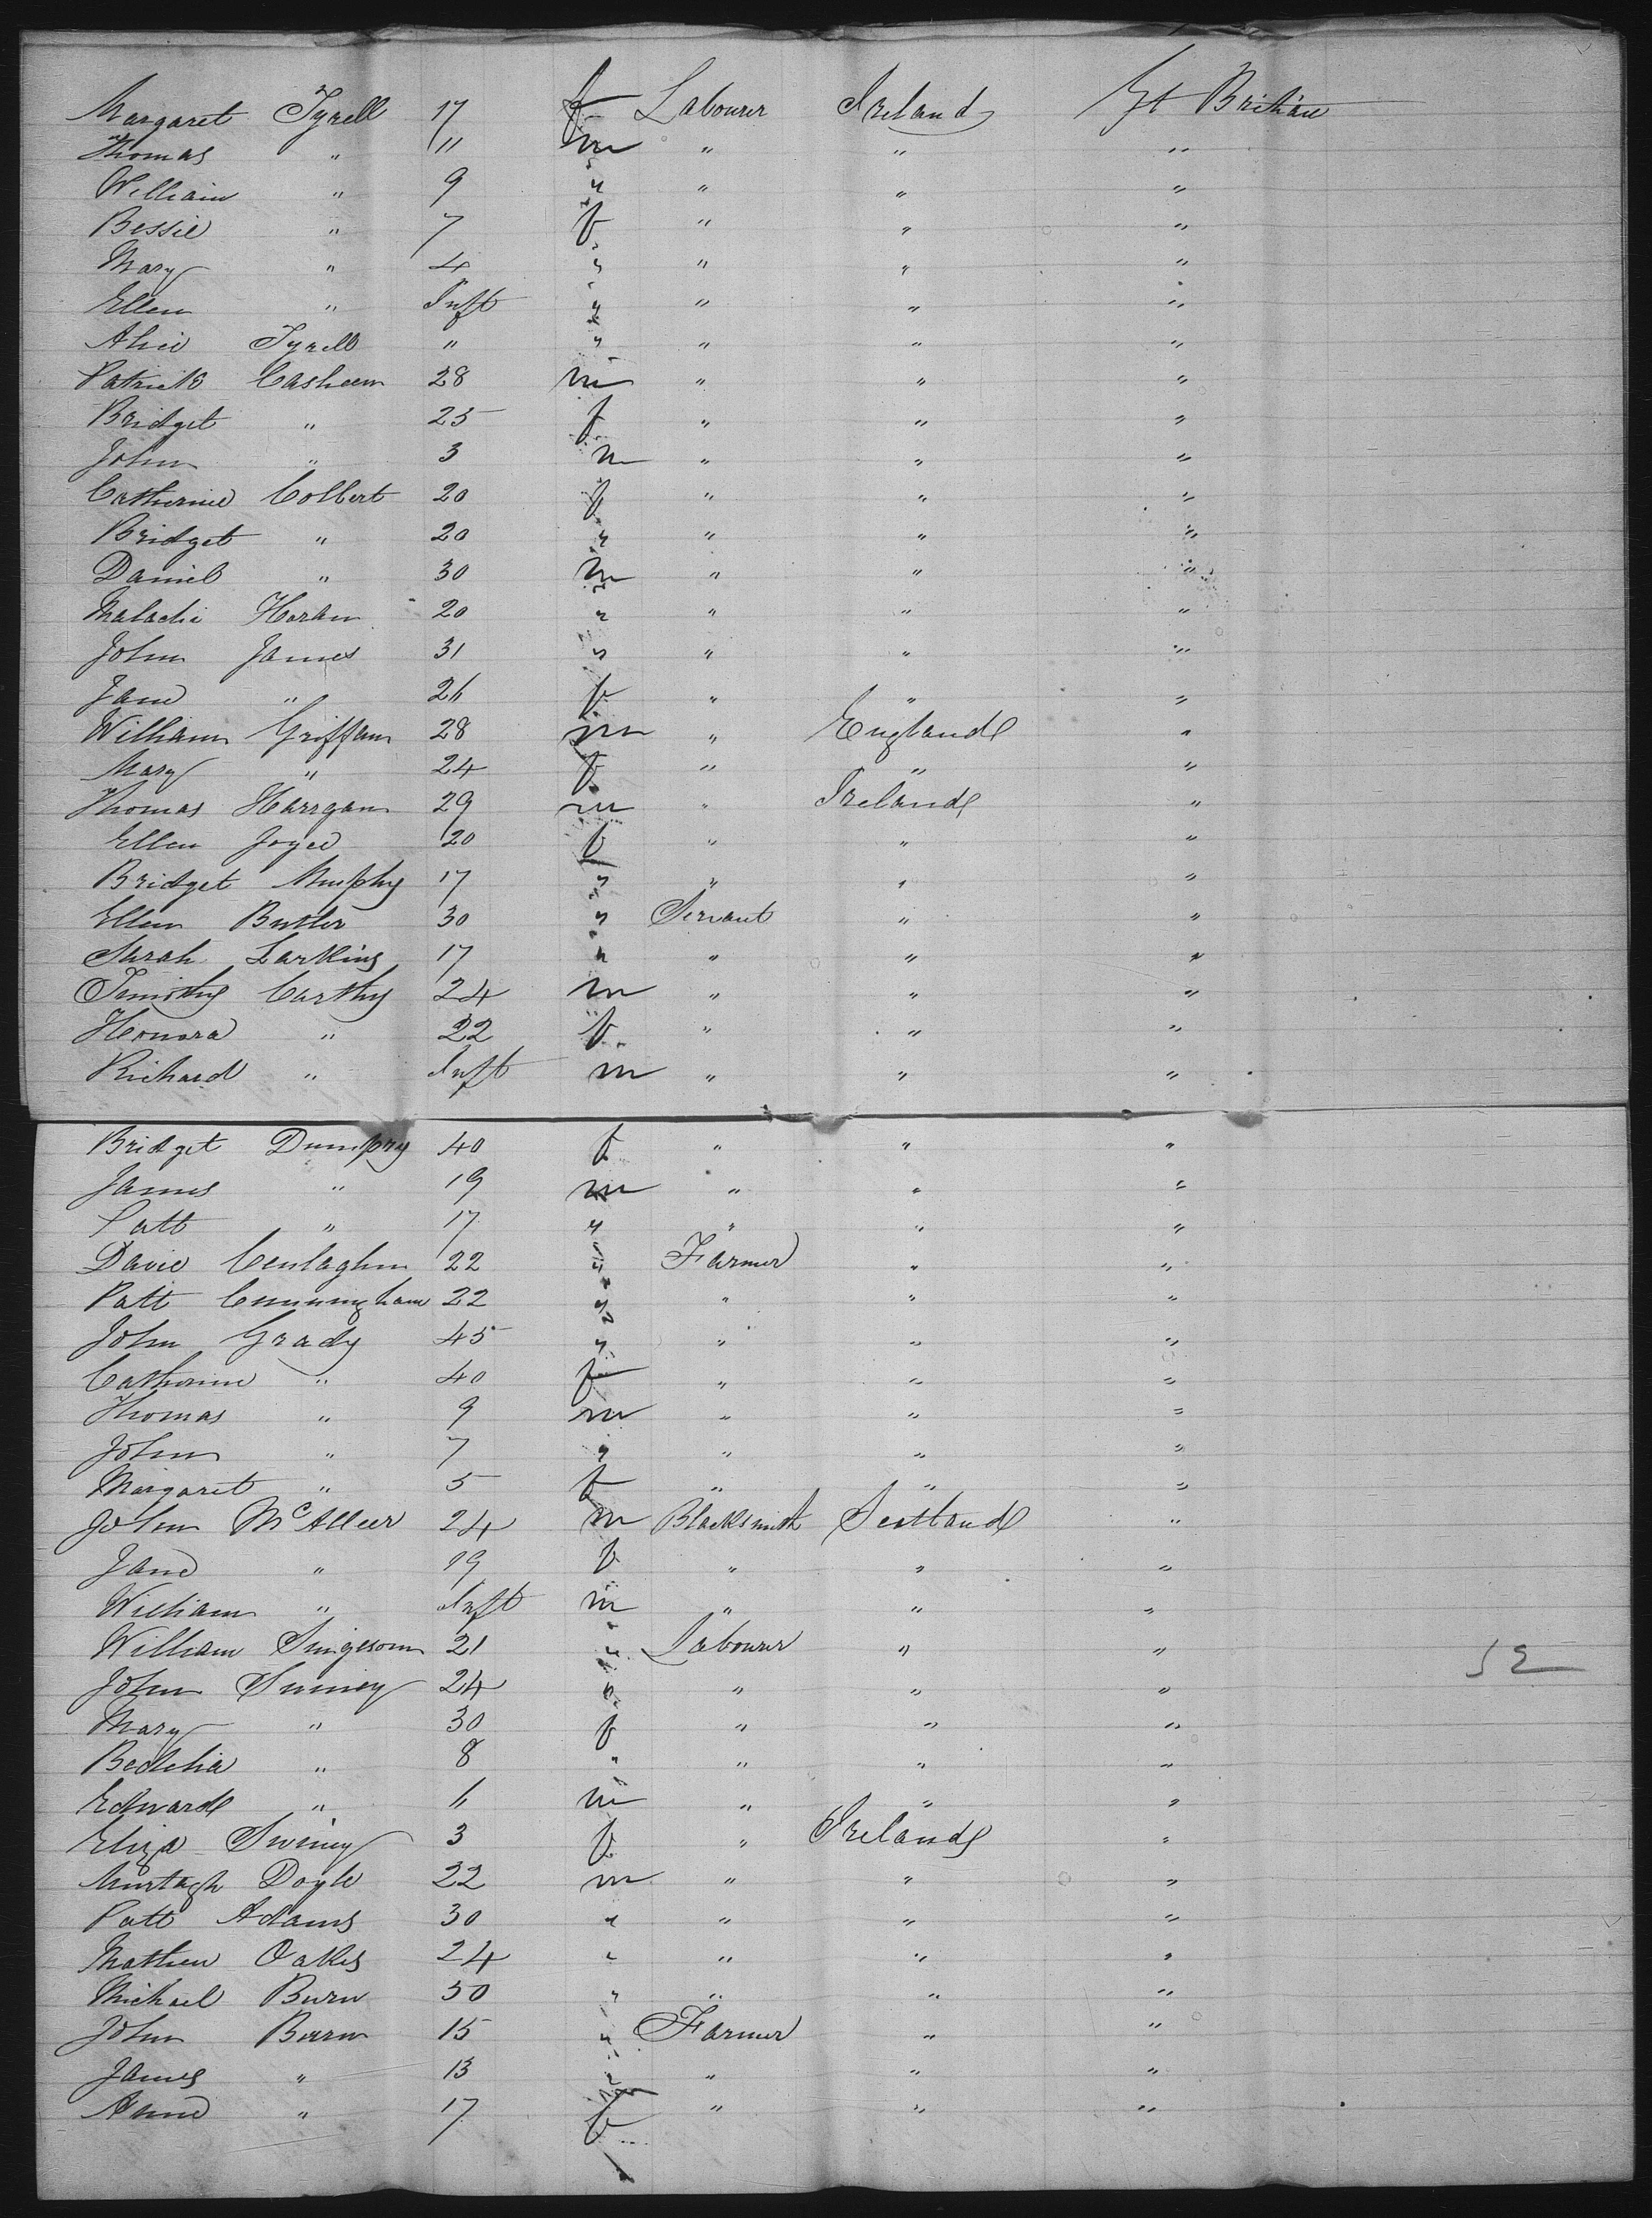 Margaret Tyrell 17 f Labourer Ireland Gt Britian
Thomas " 11 m " " "
William " 9 " " " "
Bessie " 7 f " " "
Mary " 4 " " " "
Ellen " Inft " " " "
Alice Tyrell " " " " "
Patrick Casheen 28 m " " "
Bridget " 25 f " " "
John " 3 m " " "
Catherine Colbert 20 f " " "
Bridget " 20 " " " "
Daniel " 30 m " " "
Malachi Horan 20 " " " "
John James 31 " " " "
Jane " 26 f " " "
William Griffam 28 m " England "
Mary " 24 f " " "
Thomas Harrgan 29 m " Ireland "
Ellen Joyce 20 f " " "
Bridget Murphy 17 " " " "
Ellen Butler 30 " Servant " "
Sarah Larkins 17 " " " "
Timothy Carthy 24 m " " "
Honora " 22 f " " "
Richard " Inft m " " "
Bridget Dumpry 40 f " " "
James " 19 m " " "
Patt " 17 " " " "
Davie 22 " Farmer " "
Patt Cunningham 22 " " " "
John Grady 45 " " " "
Catherine " 40 f " " "
Thomas " 9 m " " "
John " 7 " " " "
Margaret " 5 f " " "
John McAlleer 24 m Blacksmith Scotland "
Jane " 19 f " " "
William " Inft m " " "
William 21 " Labourer " "
John Swiney 24 " " " "
Mary " 30 f " " "
Bedelia " 8 " " " "
Edward " 6 m " " "
Eliza Swiney 3 f " Ireland "
Murtagh Doyle 22 m " " "
Patt Adams 30 " " " "
Mathew Oakes 24 " " " "
Michael Burn 50 " " " "
John Burn 15 " Farmer " "
James " 13 " " " "
Anne " 17 f " " "